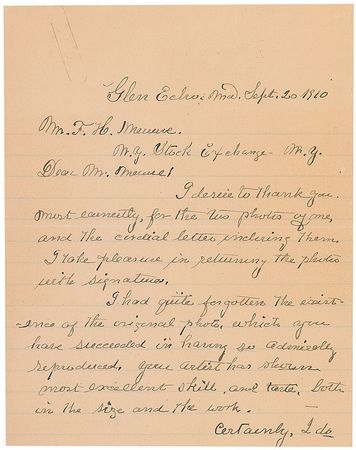 Glen Echo, Md. Sept. 20 1910
Mr. F. H.
N.Y. Stock Exchange - N.Y.
Dear Mr.
I desire to thank you
most earnestly, for the two photos of me,
and the cordial letter inclosing them.
I take pleasure in returning the photos
with signature.
I had quite forgotten the exist-
ence of the original photo, which you
have succeeded in having so admirably
reproduced. Your artist has shown
most excellent skill, and taste, both
in the size and the work.
Certainly, I do